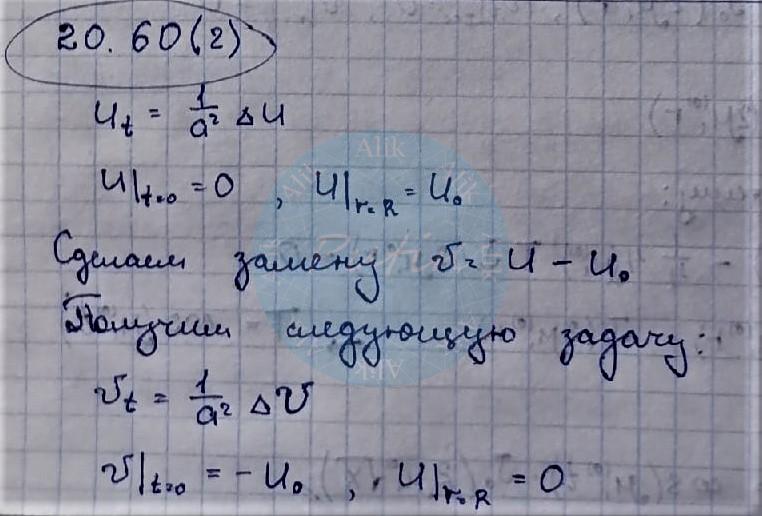 20.60(2)
u_t = 1/a² Δu
u|_{t=0} = 0 , u|_{r=R} = u₀
Сделаем замену v = u - u₀
Получим следующую задачу:
v_t = 1/a² Δv
v|_{t=0} = -u₀ , u|_{r=R} = 0
Alik
Alik
Alik